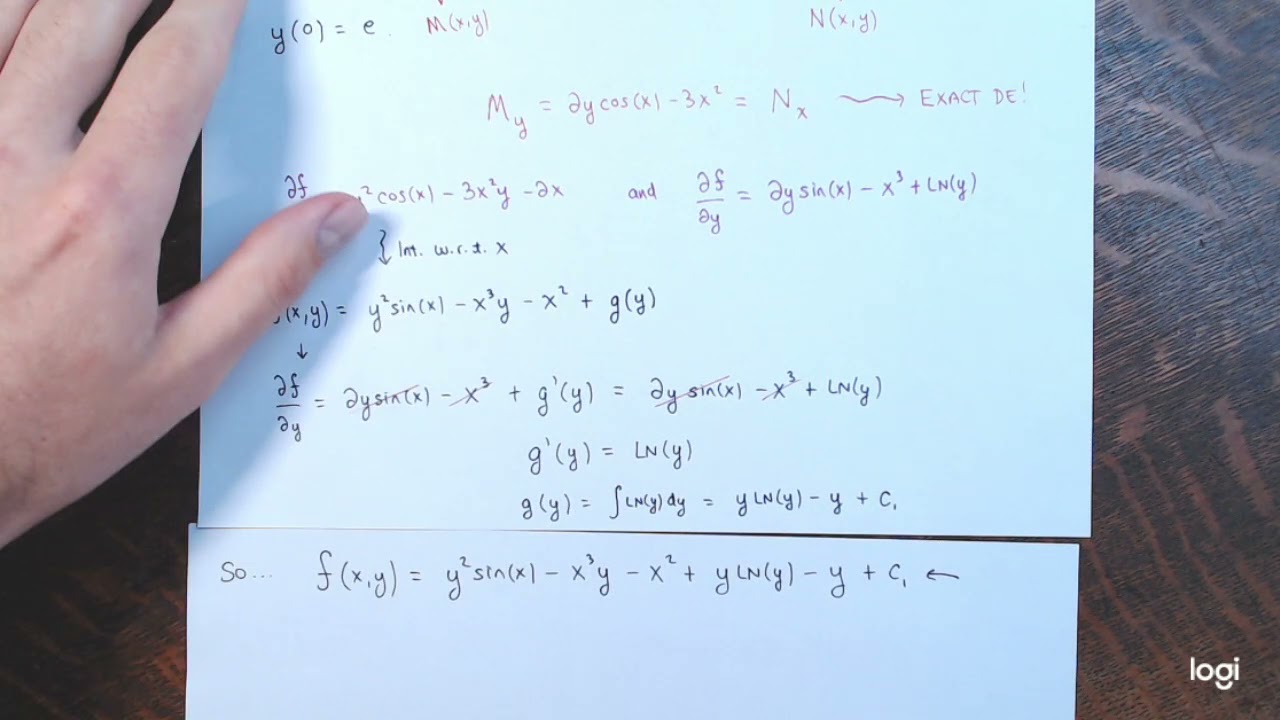 y(0) = e M(x,y) N(x,y)
M_y = 2ycos(x) - 3x² = N_x ⟿ EXACT DE!
∂f ² cos(x) - 3x²y - 2x and ∂f/∂y = 2ysin(x) - x³ + LN(y)
Int. w.r.t. x
(x,y) = y²sin(x) - x³y - x² + g(y)
↓
∂f/∂y = 2ysin(x) - x³ + g'(y) = 2ysin(x) - x³ + LN(y)
g'(y) = LN(y)
g(y) = ∫LN(y)dy = yLN(y) - y + C₁
So... f(x,y) = y²sin(x) - x³y - x² + yLN(y) - y + C₁ ←
logi